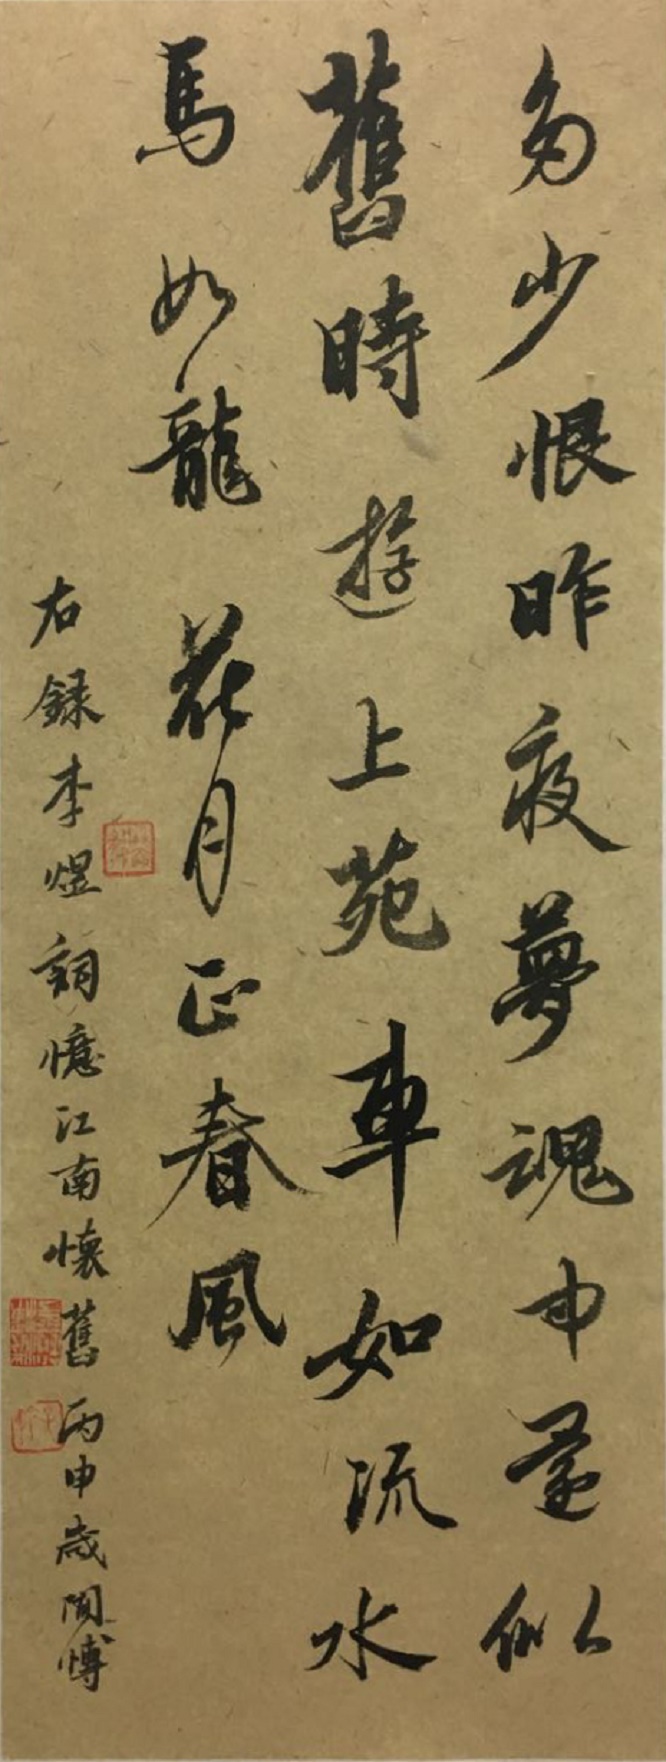 多少恨昨夜夢魂中還似
舊時遊上苑車如流水
馬如龍花月正春風
右録李煜詞憶江南懷舊丙申歲